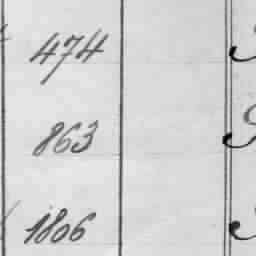 474
863
1806